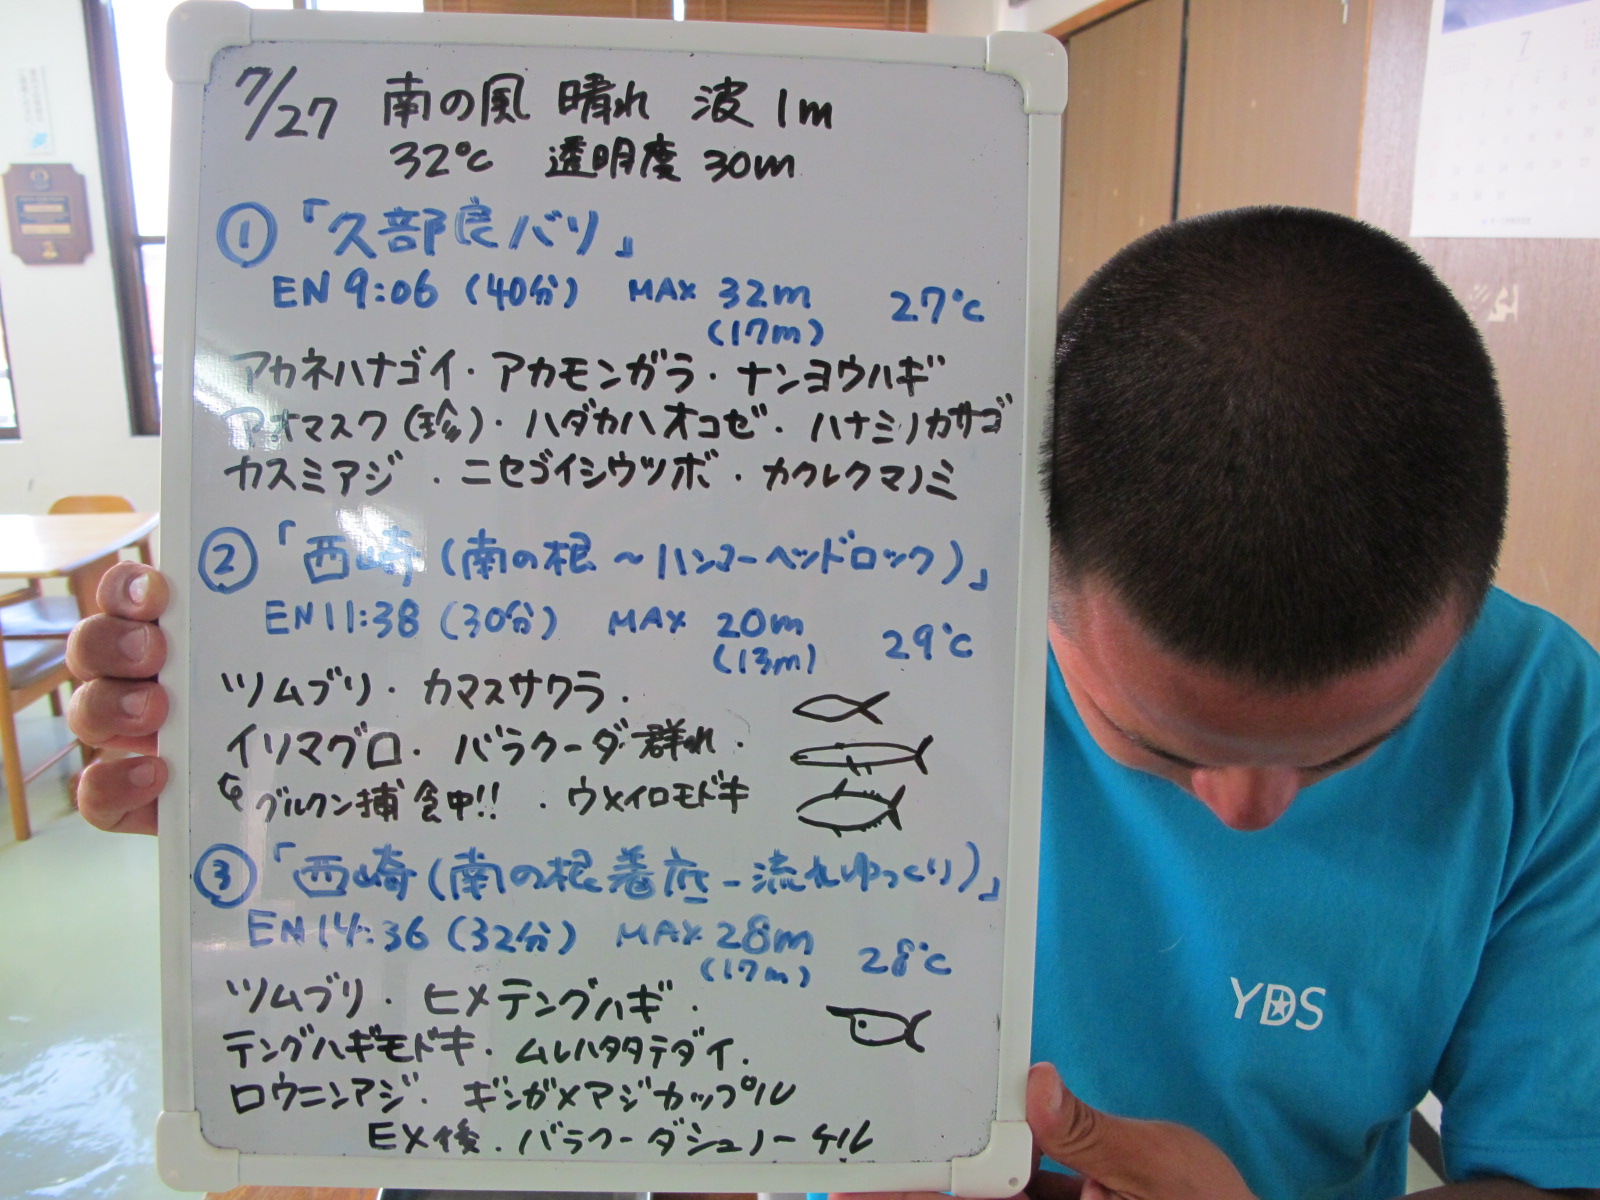 7/27 南の風 晴れ 波 1m
32℃ 透明度 30m
① 「久部良バリ」
EN 9:06 (40分) MAX 32m 27℃
(17m)
アカネハナゴイ・アカモンガラ・ナンヨウハギ
アオマスク(珍)・ハダカハオコゼ・ハナミノカサゴ
カスミアジ・ニセゴイシウツボ・カクレクマノミ
② 「西崎(南の根~ハンマーヘッドロック)」
EN 11:38 (30分) MAX 20m 29℃
(13m)
ツムブリ・カマスサワラ・
イソマグロ・バラクーダ群れ・
グルクン捕食中!!・ウメイロモドキ
③ 「西崎(南の根着底-流れゆっくり)」
EN 14:36 (32分) MAX 28m 28℃
(17m)
ツムブリ・ヒメテングハギ・
テングハギモドキ・ムレハタタテダイ.
ロウニンアジ・ギンガメアジカップル
EX後・バラクーダシュノーケル
YDS
7